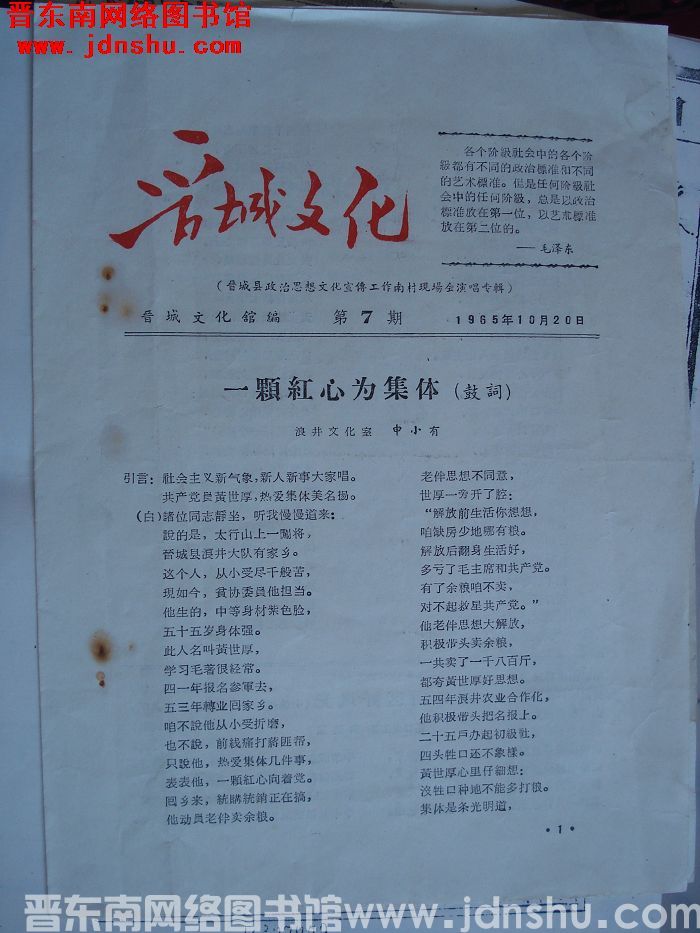 晋东南网络图书馆
www.jdnshu.com
晋城文化
各个阶級社会中的各个阶
級都有不同的政治標准和不同
的艺术標准。但是任何阶級社
会中的任何阶級，总是以政治
標准放在第一位，以艺术標准
放在第二位的。
——毛泽东
（晋城县政治思想文化宣傳工作南村現場会演唱专輯）
晋城文化舘編 第7期 1965年10月20日
一顆紅心为集体（鼓詞）
浪井文化室 申小有
引言：社会主义新气象，新人新事大家唱。
共产党员黃世厚，热爱集体美名揚。
（白）諸位同志靜坐，听我慢慢道来：
說的是，太行山上一闖将，
晉城县浪井大队有家乡。
这个人，从小受尽千般苦，
現如今，貧协委員他担当。
他生的，中等身材紫色脸，
五十五岁身体强。
此人名叫黃世厚，
学习毛著很經常。
四一年报名参軍去，
五三年轉业囘家乡。
咱不說他从小受折磨，
也不說，前线痛打蔣匪帮，
只說他，热爱集体几件事，
表表他，一顆紅心向着党。
囘乡来，統購統銷正在搞，
他动員老伴卖余粮。
老伴思想不同意，
世厚一旁开了腔：
“解放前生活你想想，
咱缺房少地哪有粮。
解放后翻身生活好，
多亏了毛主席和共产党。
有了余粮咱不卖，
对不起救星共产党。”
他老伴思想大解放，
积极带头卖余粮，
一共卖了一千八百斤，
都夸黃世厚好思想。
五四年浪井农业合作化，
他积极带头把名报上。
二十五戶办起初級社，
四头牲口还不象樣。
黃世厚心里仔細想：
沒牲口种地不能多打粮。
集体是条光明道，
·1·
晋东南网络图书馆www.jdnshu.com